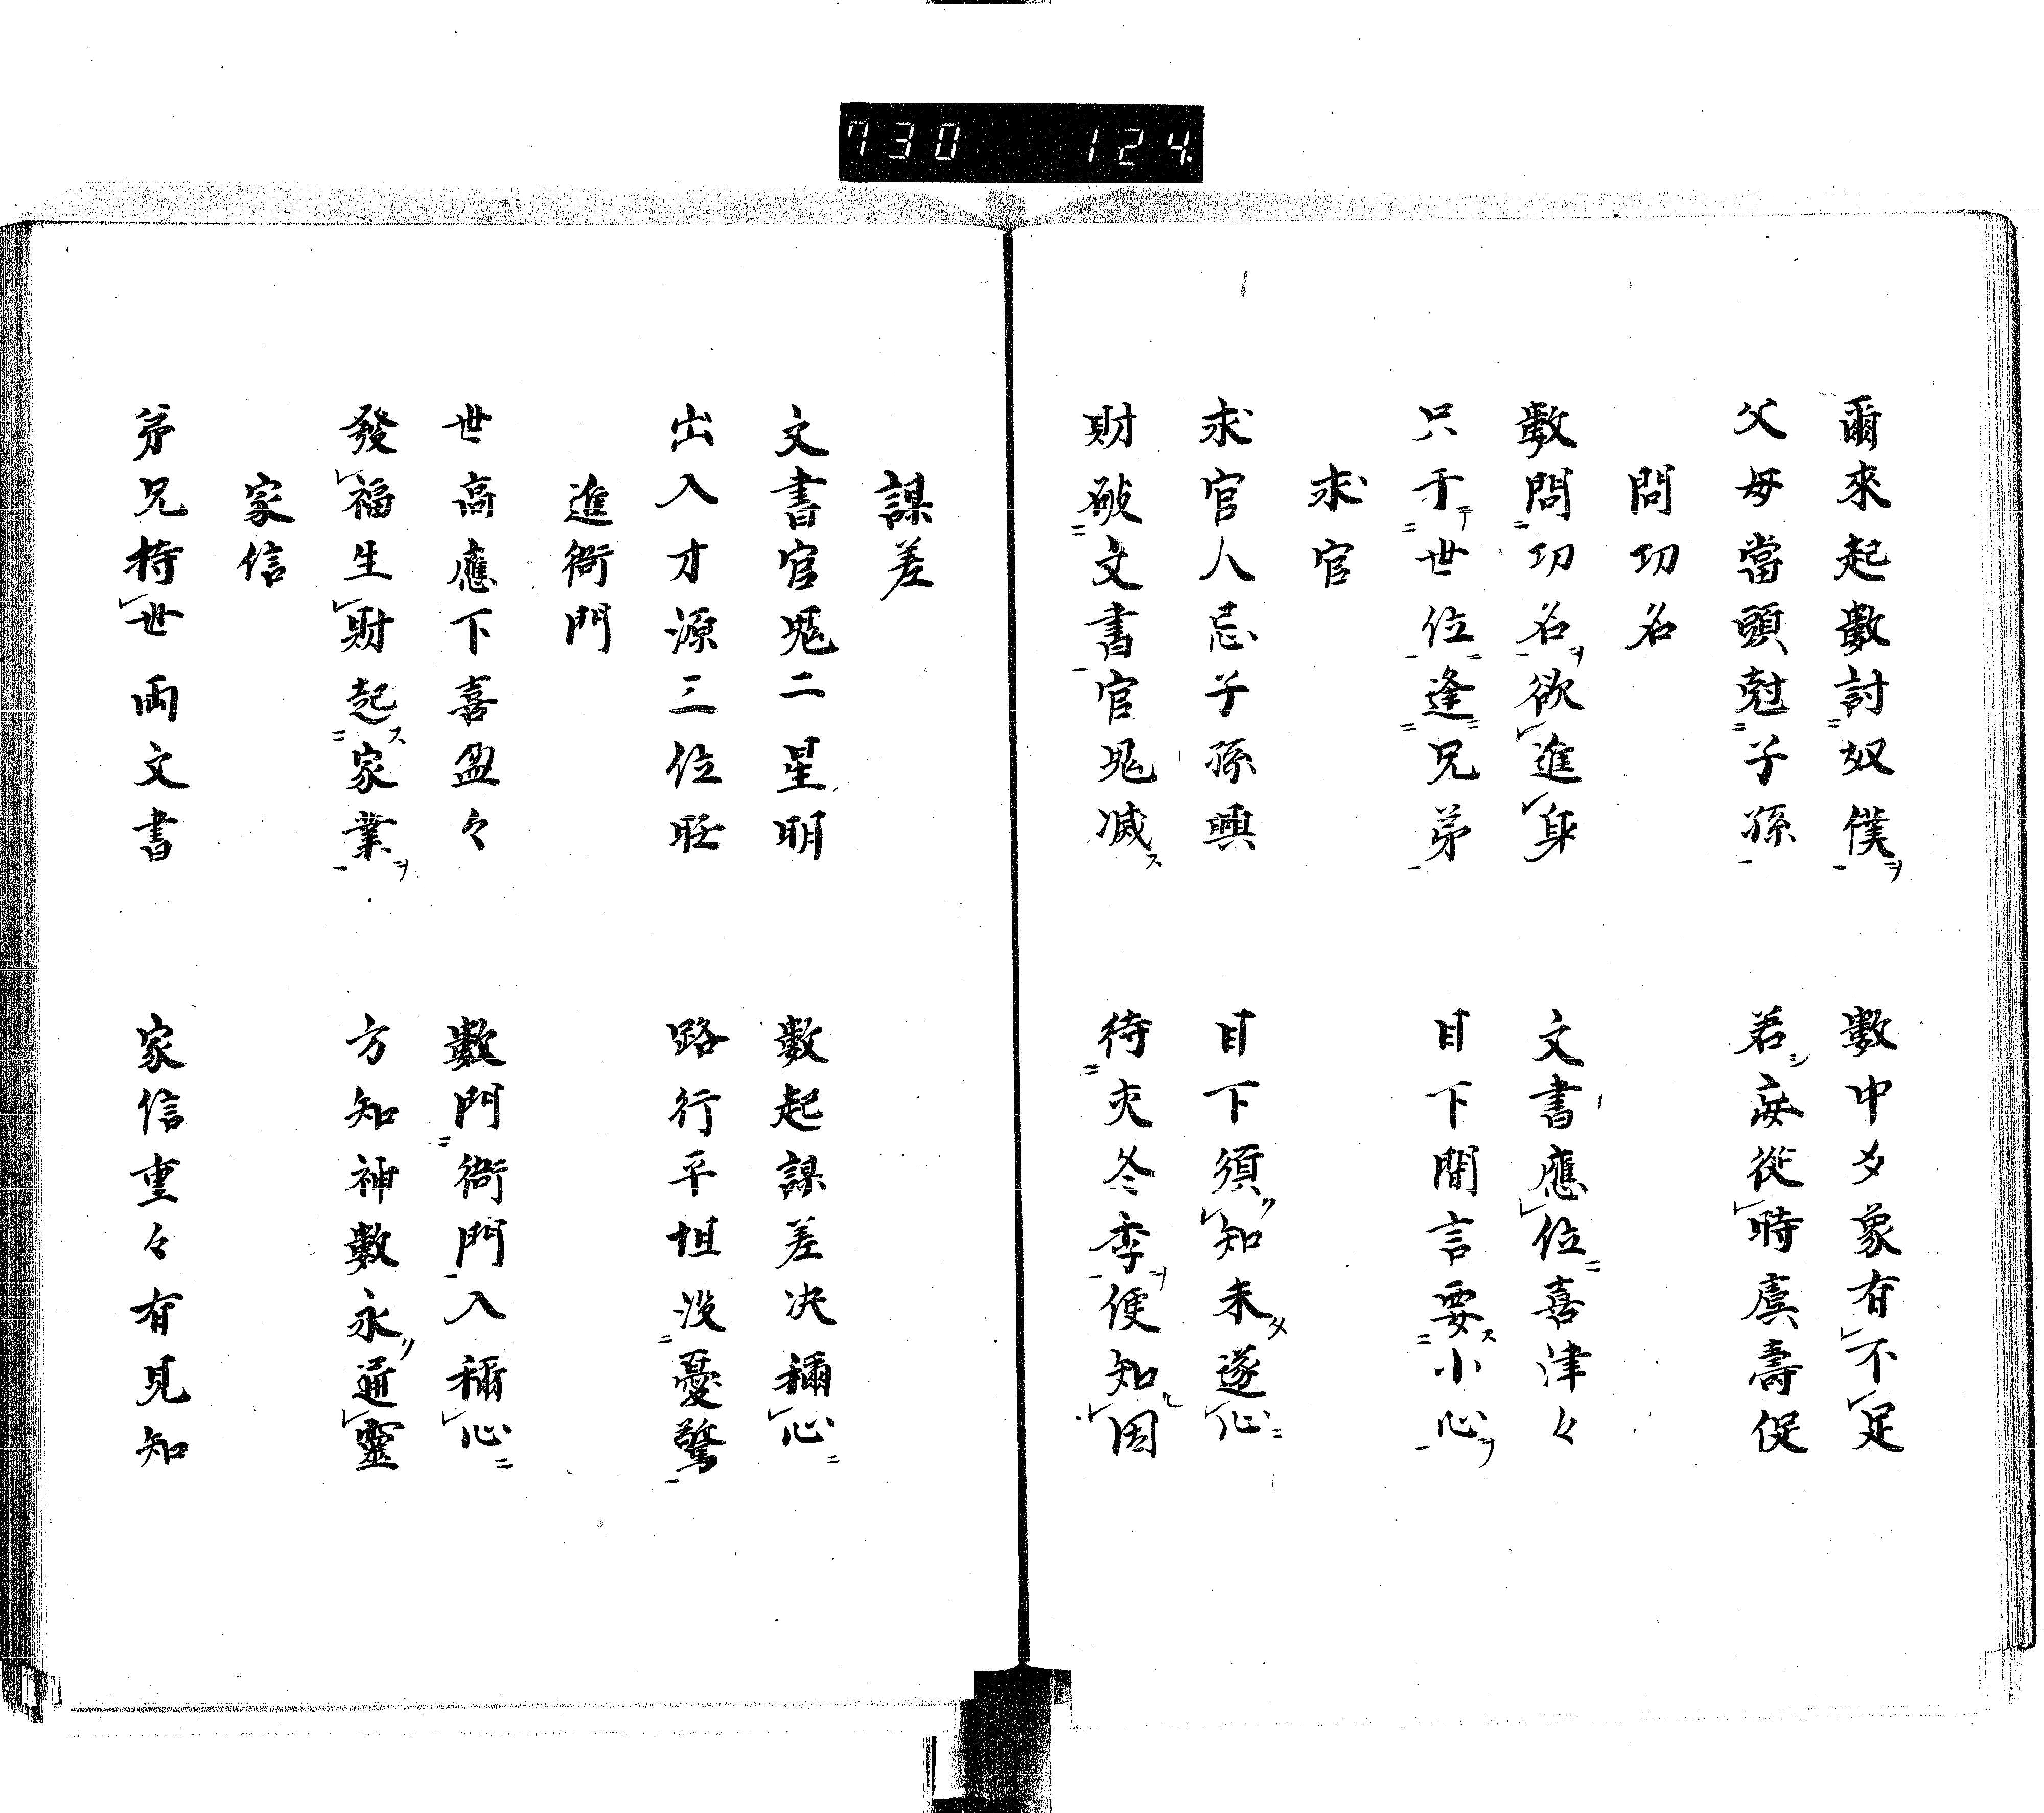 730 124
爾來起數討奴僕 數中爻象有不足
父母當頭尅子孫 若妄從時虞壽促
問功名
數問功名欲進身 文書應位喜津々
只于世位逢兄弟 目下閒言要小心
求官
求官人忌子孫興 目下須知未遂心
財破文書官鬼滅 待交冬季便知因
謀差
文書官鬼二星明 數起謀差决稱心
出入才源三位旺 路行平坦没憂驚
進衙門
世高應下喜盈々 數門衙門入稱心
發福生財起家業 方知神數永通靈
家信
弟兄持世兩文書 家信重々有見知